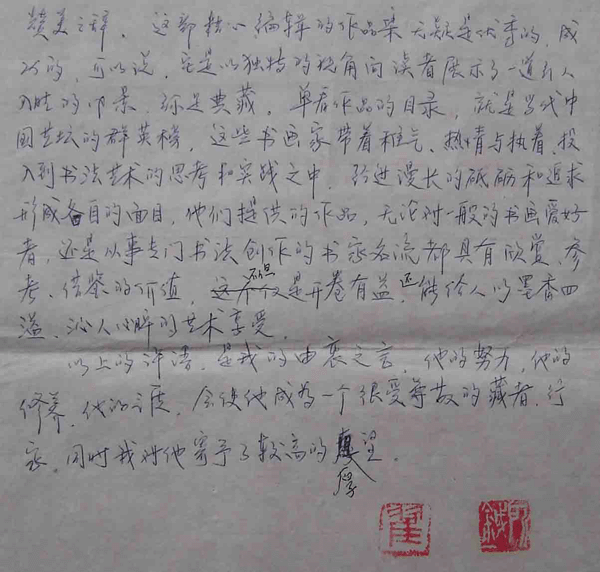 赞美之辞，这部精心编辑的作品集无疑是优秀的，成
功的，可以说，它是以独特的视角向读者展示了一道引人
入胜的风景，弥足典藏。单看作品的目录，就是当代中
国艺坛的群英榜，这些书画家带着稚气、热情与执着，投
入到书法艺术的思考和实战之中，经过漫长的砥砺和追求
形成各自的面目，他们提供的作品，无论对一般的书画爱好
者，还是从事专门书法创作的书家名流都具有欣赏、参
考、借鉴的价值，不但是开卷有益，还能给人以墨香四
溢、沁人心醉的艺术享受。
以上的评语，是我的由衷之言，他的努力，他的
修养，他的态度，会使他成为一个很受尊敬的藏者、行
家，同时我对他寄予了较高的厚望。